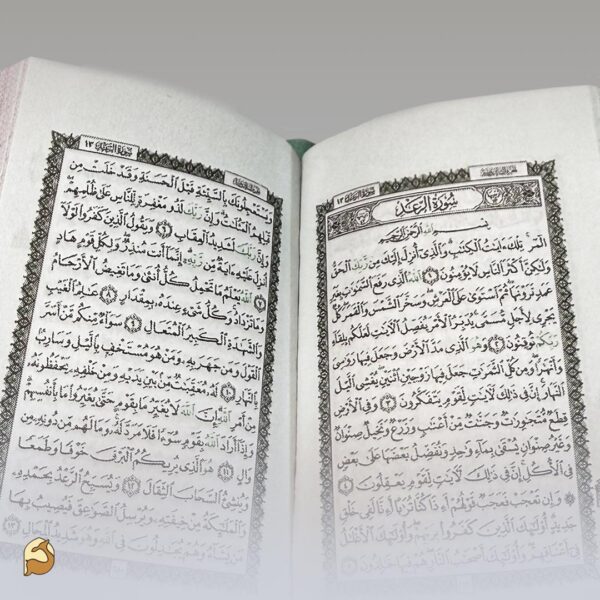 سورة الرعد ١٣
سُورَةُ الرَّعْدِ
بِسْمِ اللَّهِ الرَّحْمَٰنِ الرَّحِيمِ
الٓمٓر تِلْكَ ءَايَٰتُ الْكِتَٰبِ وَالَّذِىٓ أُنزِلَ إِلَيْكَ مِن رَّبِّكَ الْحَقُّ
وَلَٰكِنَّ أَكْثَرَ النَّاسِ لَا يُؤْمِنُونَ ١ اللَّهُ الَّذِى رَفَعَ السَّمَٰوَٰتِ بِغَيْرِ
عَمَدٍ تَرَوْنَهَا ثُمَّ اسْتَوَىٰ عَلَى الْعَرْشِ وَسَخَّرَ الشَّمْسَ وَالْقَمَرَ كُلٌّ
يَجْرِى لِأَجَلٍ مُّسَمًّى يُدَبِّرُ الْأَمْرَ يُفَصِّلُ الْءَايَٰتِ لَعَلَّكُم بِلِقَآءِ
رَبِّكُمْ تُوقِنُونَ ٢ وَهُوَ الَّذِى مَدَّ الْأَرْضَ وَجَعَلَ فِيهَا رَوَٰسِىَ
وَأَنْهَٰرًا وَمِن كُلِّ الثَّمَرَٰتِ جَعَلَ فِيهَا زَوْجَيْنِ اثْنَيْنِ يُغْشِى الَّيْلَ
النَّهَارَ إِنَّ فِى ذَٰلِكَ لَءَايَٰتٍ لِّقَوْمٍ يَتَفَكَّرُونَ ٣ وَفِى الْأَرْضِ
قِطَعٌ مُّتَجَٰوِرَٰتٌ وَجَنَّٰتٌ مِّنْ أَعْنَٰبٍ وَزَرْعٌ وَنَخِيلٌ صِنْوَانٌ
وَغَيْرُ صِنْوَانٍ يُسْقَىٰ بِمَآءٍ وَٰحِدٍ وَنُفَضِّلُ بَعْضَهَا عَلَىٰ بَعْضٍ
فِى الْأُكُلِ إِنَّ فِى ذَٰلِكَ لَءَايَٰتٍ لِّقَوْمٍ يَعْقِلُونَ ٤
وَإِن تَعْجَبْ فَعَجَبٌ قَوْلُهُمْ أَءِذَا كُنَّا تُرَٰبًا أَءِنَّا لَفِى خَلْقٍ
جَدِيدٍ أُو۟لَٰٓئِكَ الَّذِينَ كَفَرُوا۟ بِرَبِّهِمْ وَأُو۟لَٰٓئِكَ الْأَغْلَٰلُ
فِىٓ أَعْنَاقِهِمْ وَأُو۟لَٰٓئِكَ أَصْحَٰبُ النَّارِ هُمْ فِيهَا خَٰلِدُونَ ٥
سورة الرعد ١٣
وَيَسْتَعْجِلُونَكَ بِالسَّيِّئَةِ قَبْلَ الْحَسَنَةِ وَقَدْ خَلَتْ مِن
قَبْلِهِمُ الْمَثُلَٰتُ وَإِنَّ رَبَّكَ لَذُو مَغْفِرَةٍ لِّلنَّاسِ عَلَىٰ ظُلْمِهِمْ
وَإِنَّ رَبَّكَ لَشَدِيدُ الْعِقَابِ ٦ وَيَقُولُ الَّذِينَ كَفَرُوا۟ لَوْلَآ
أُنزِلَ عَلَيْهِ ءَايَةٌ مِّن رَّبِّهِۦٓ إِنَّمَآ أَنتَ مُنذِرٌ وَلِكُلِّ قَوْمٍ هَادٍ
٧ اللَّهُ يَعْلَمُ مَا تَحْمِلُ كُلُّ أُنثَىٰ وَمَا تَغِيضُ الْأَرْحَامُ
وَمَا تَزْدَادُ وَكُلُّ شَىْءٍ عِندَهُۥ بِمِقْدَارٍ ٨ عَٰلِمُ الْغَيْبِ
وَالشَّهَٰدَةِ الْكَبِيرُ الْمُتَعَالِ ٩ سَوَآءٌ مِّنكُم مَّنْ أَسَرَّ
الْقَوْلَ وَمَن جَهَرَ بِهِۦ وَمَنْ هُوَ مُسْتَخْفٍۭ بِالَّيْلِ وَسَارِبٌۢ
بِالنَّهَارِ ١٠ لَهُۥ مُعَقِّبَٰتٌ مِّنۢ بَيْنِ يَدَيْهِ وَمِنْ خَلْفِهِۦ يَحْفَظُونَهُۥ
مِنْ أَمْرِ اللَّهِ إِنَّ اللَّهَ لَا يُغَيِّرُ مَا بِقَوْمٍ حَتَّىٰ يُغَيِّرُوا۟ مَا بِأَنفُسِهِمْ
وَإِذَآ أَرَادَ اللَّهُ بِقَوْمٍ سُوٓءًا فَلَا مَرَدَّ لَهُۥ وَمَا لَهُم مِّن دُونِهِۦ مِن
وَالٍ ١١ هُوَ الَّذِى يُرِيكُمُ الْبَرْقَ خَوْفًا وَطَمَعًا
وَيُنشِئُ السَّحَابَ الثِّقَالَ ١٢ وَيُسَبِّحُ الرَّعْدُ بِحَمْدِهِۦ
وَالْمَلَٰٓئِكَةُ مِنْ خِيفَتِهِۦ وَيُرْسِلُ الصَّوَٰعِقَ فَيُصِيبُ بِهَا
مَن يَشَآءُ وَهُمْ يُجَٰدِلُونَ فِى اللَّهِ وَهُوَ شَدِيدُ الْمِحَالِ ١٣